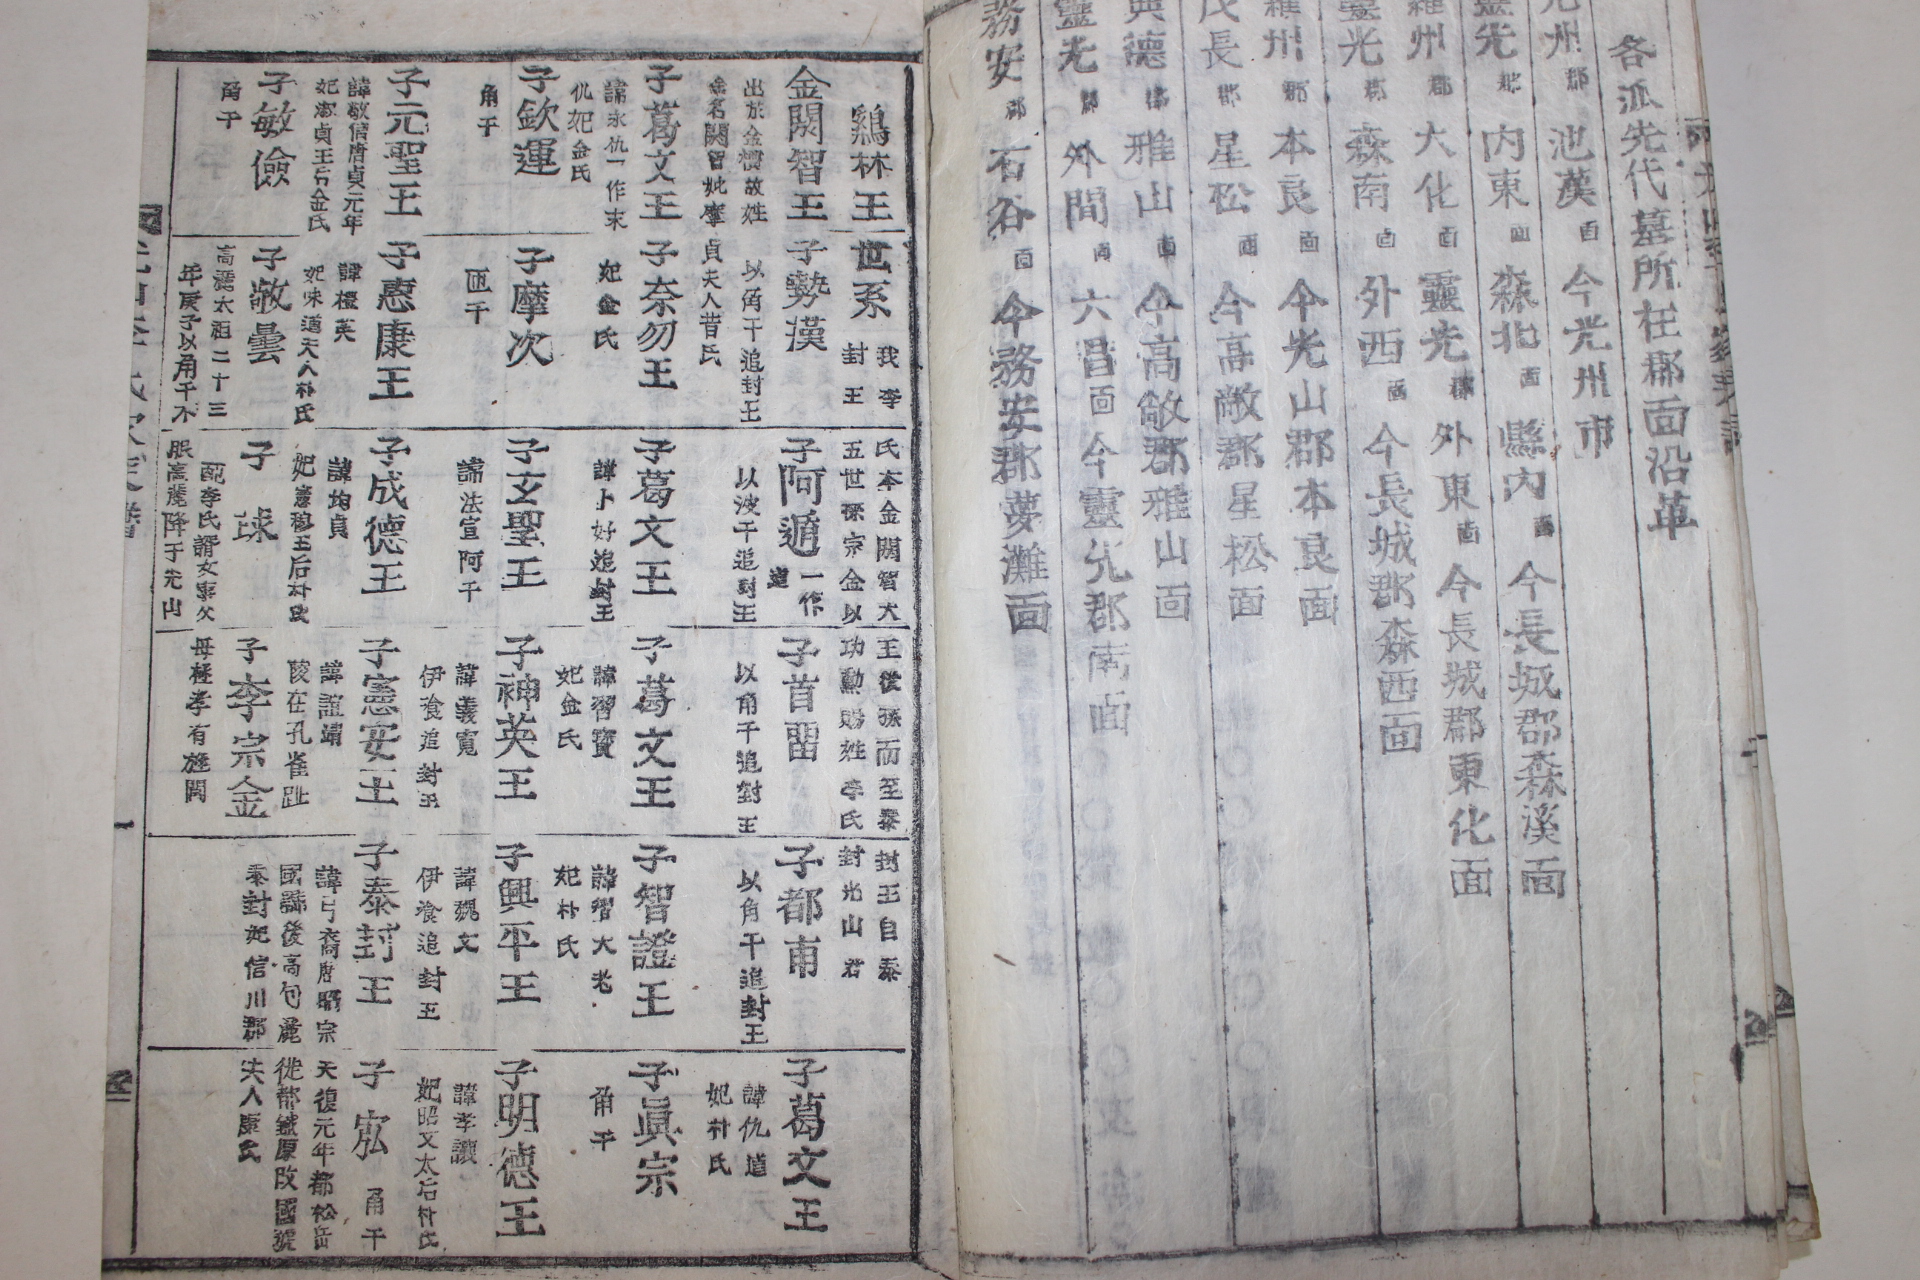 各派先代墓所在郡面沿革
光州 郡 池漢 面 今光州市
靈光 郡 內東 面 森北 面 縣內 面 今長城郡森溪面
羅州 郡 大化 面 靈光 郡 外東 面 今長城郡東化面
靈光 郡 森南 面 外西 面 今長城郡森西面
羅州 郡 本良 面 今光山郡本良面
茂長 郡 星松 面 今高敞郡星松面
興德 郡 雅山 面 今高敞郡雅山面
靈光 郡 外間 面 六昌面 今靈光郡南面
務安 郡 石谷 面 今務安郡夢灘面
鷄林王世系
我李氏本金閼智大王後孫而至泰封王自泰
封王五世孫宗金以功勳賜姓李氏封光山君
金閼智王
出於金櫃故姓
金名閼智妣摩
貞夫人昔氏
子勢漢
以角干追封王
子阿道
一作
以波干追封王
子首留
以角干追封王
子都甫
以角干追封王
子葛文王
諱仇道
妃朴氏
子葛文王
諱末仇一作末
仇妃金氏
子奈勿王
妃金氏
子葛文王
諱卜好追封王
子葛文王
諱習寶
妃金氏
子智證王
諱智大老
妃朴氏
子眞宗
角干
子欽運
角干
子摩次
匝干
子玄聖王
諱法宣阿干
子神英王
諱義寬
伊飡追封王
子興平王
諱魏文
伊飡追封王
子明德王
諱孝讓
妃昭文太后朴氏
子元聖王
諱敬信唐貞元年
妃淑貞王后金氏
子惠康王
諱禮英
妃味道夫人朴氏
子成德王
諱均貞
妃憲穆王后朴氏
子憲安王
諱誼靖
陵在孔雀趾
子泰封王
諱弓裔唐昭宗
天復元年都松岳
國號後高句麗
徙都鐵原改國號
泰封妃信川郡
夫人康氏
子宖
角干
子敏儉
角干
子敬曇
高麗太祖二十三
年庚子以角干不
服高麗降于光山
子球
配李氏
子李宗金
母極孝有旌閭